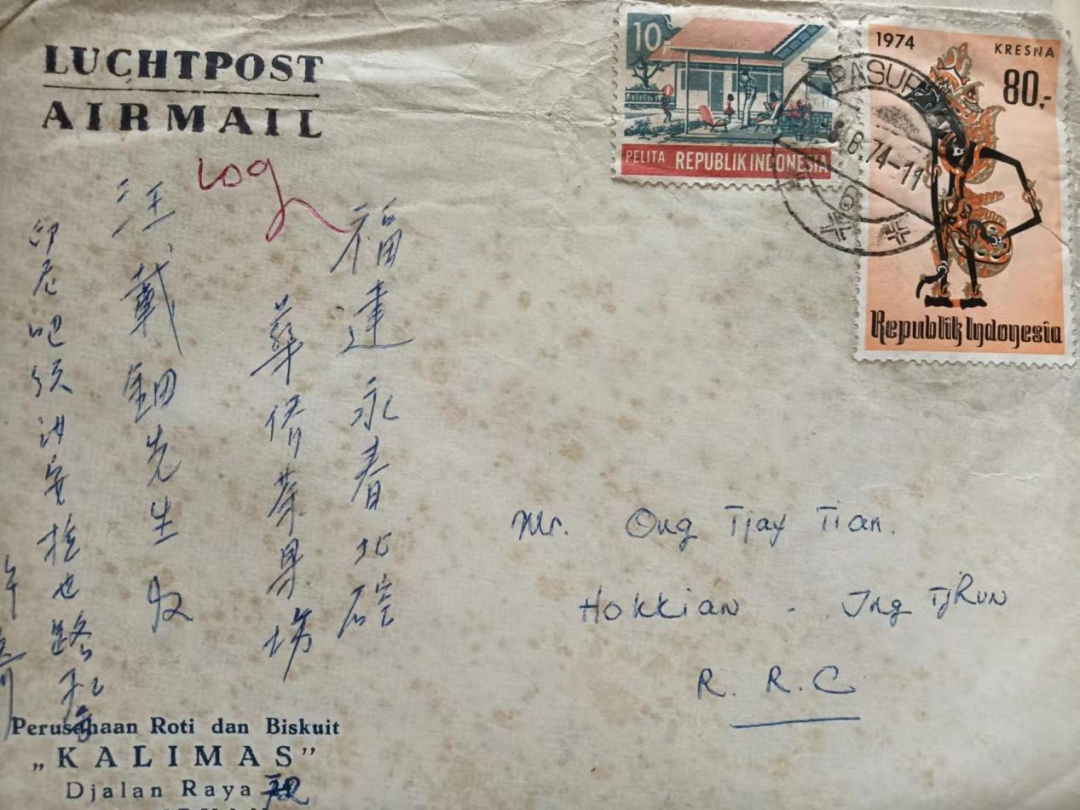 LUCHTPOST
AIRMAIL
10
PELITA REPUBLIK INDONESIA
1974 KRESNA
80,-
Republik Indonesia
PASUR
.6.74-11
福建永春北硿
華僑茶果場
汪載鈿先生 收
印尼吧須汝安拉也路
Mr. Ong Tjay Tian.
Hokkian - Ing Tjhun
R. R. C
Perusahaan Roti dan Biskuit
„KALIMAS”
Djalan Raya